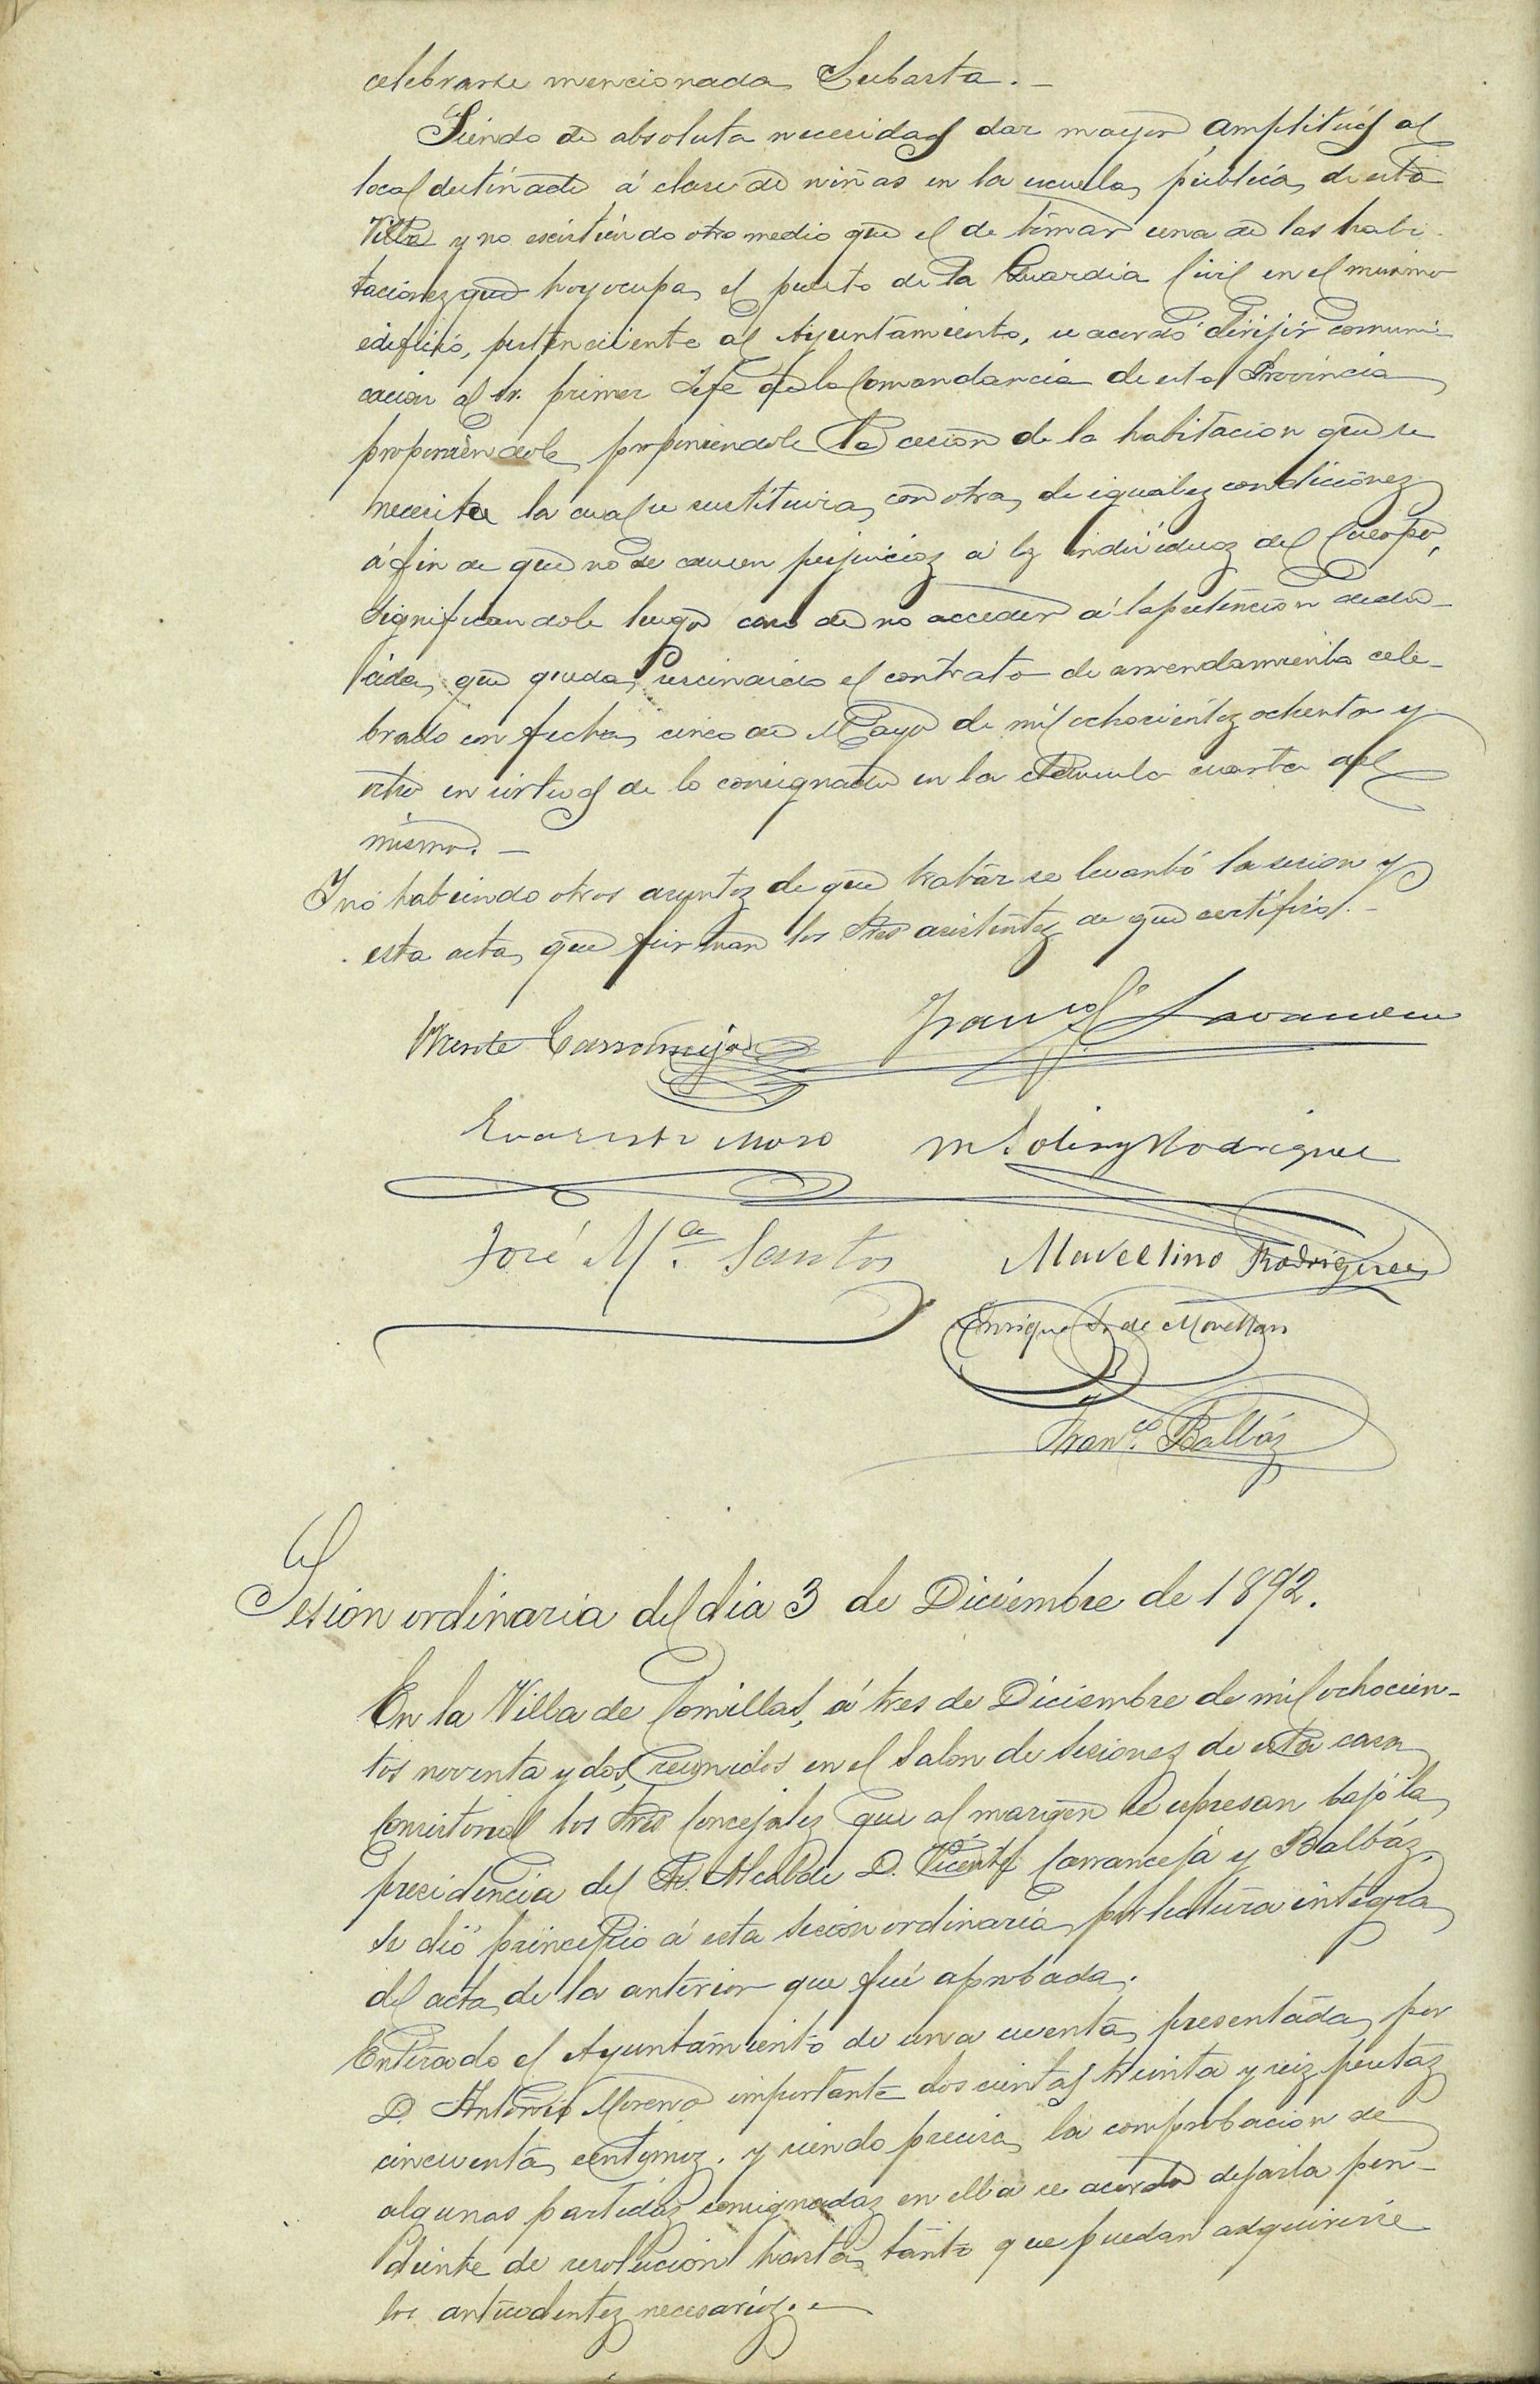 celebrarse mencionada Subasta. —
Siendo de absoluta necesidad dar mayor amplitud al
local destinado á clase de niñas en la escuela pública de esta
Villa y no existiendo otro medio que el de tomar una de las habi-
taciones que hoy ocupa el puesto de la Guardia Civil en el mismo
edificio, perteneciente al Ayuntamiento, se acordó dirijir comuni-
cacion al Sr. primer Jefe de la Comandancia de esta Provincia
proponiendole proponiendole la cesion de la habitacion que se
necesita la cual se sustituira con otra de iguales condiciones
á fin de que no se causen perjuicios a los individuos del Cuerpo,
significandole luego caso de no acceder á la petencion dedu-
cida, que queda rescindido el contrato de arrendamiento cele-
brado con fecha cinco de Mayo de mil ochocientos ochenta y
ocho en virtud de lo consignado en la clausula cuarta del
mismo. —
Y no habiendo otros asuntos de que tratar se levantó la sesion y
esta acta que firman los Sres asistentes de que certifico. —
Vicente Carranceja Franco
Evaristo Moro M Solis y Rodriguez
José Mª Santos Marcelino Rodriguez
Enrique de Movellan
Franco. Balbás
Sesion ordinaria del dia 3 de Diciembre de 1892.
En la Villa de Comillas, á tres de Diciembre de mil ochocien-
tos noventa y dos, reunidos en el Salon de Sesiones de esta casa
Consistorial los Sres Concejales que al margen se espresan bajo la
presidencia del Sr. Alcalde D. Vicente Carranceja y Balbás,
se dió principio á esta Sesion ordinaria por lectura integra
del acta de la anterior que fué aprobada.
Enterado el Ayuntamiento de una cuenta presentada por
D. Antonio Moreno importante doscientas treinta y seis pesetas
cincuenta centimos, y siendo precisa la comprobacion de
algunas partidas consignadas en ella se acordó dejarla pen-
diente de resolucion hasta tanto que puedan adquirirse
los antecedentes necesarios. —